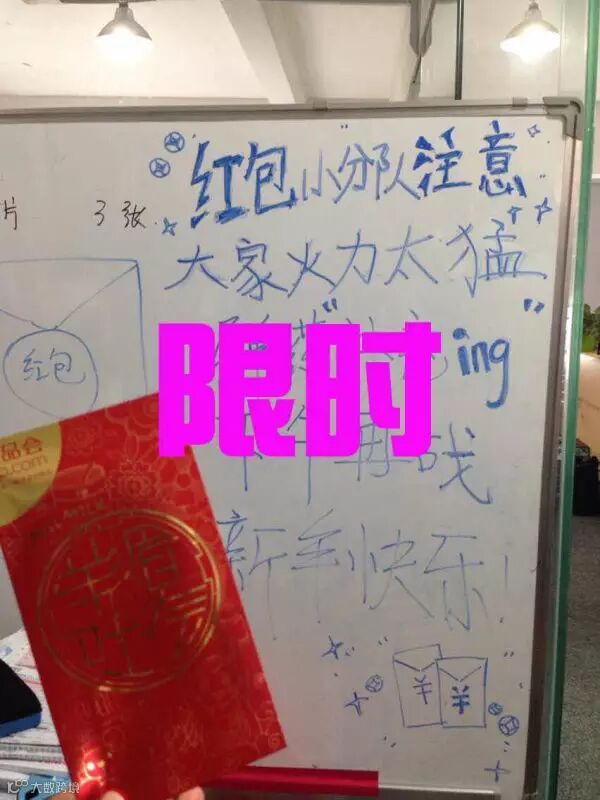 片 3张
"红包"小分队注意
大家火力太猛
ing"
下午再战
新年快乐!
红包
限时
品会
.com
羊眉吐
大数跨境